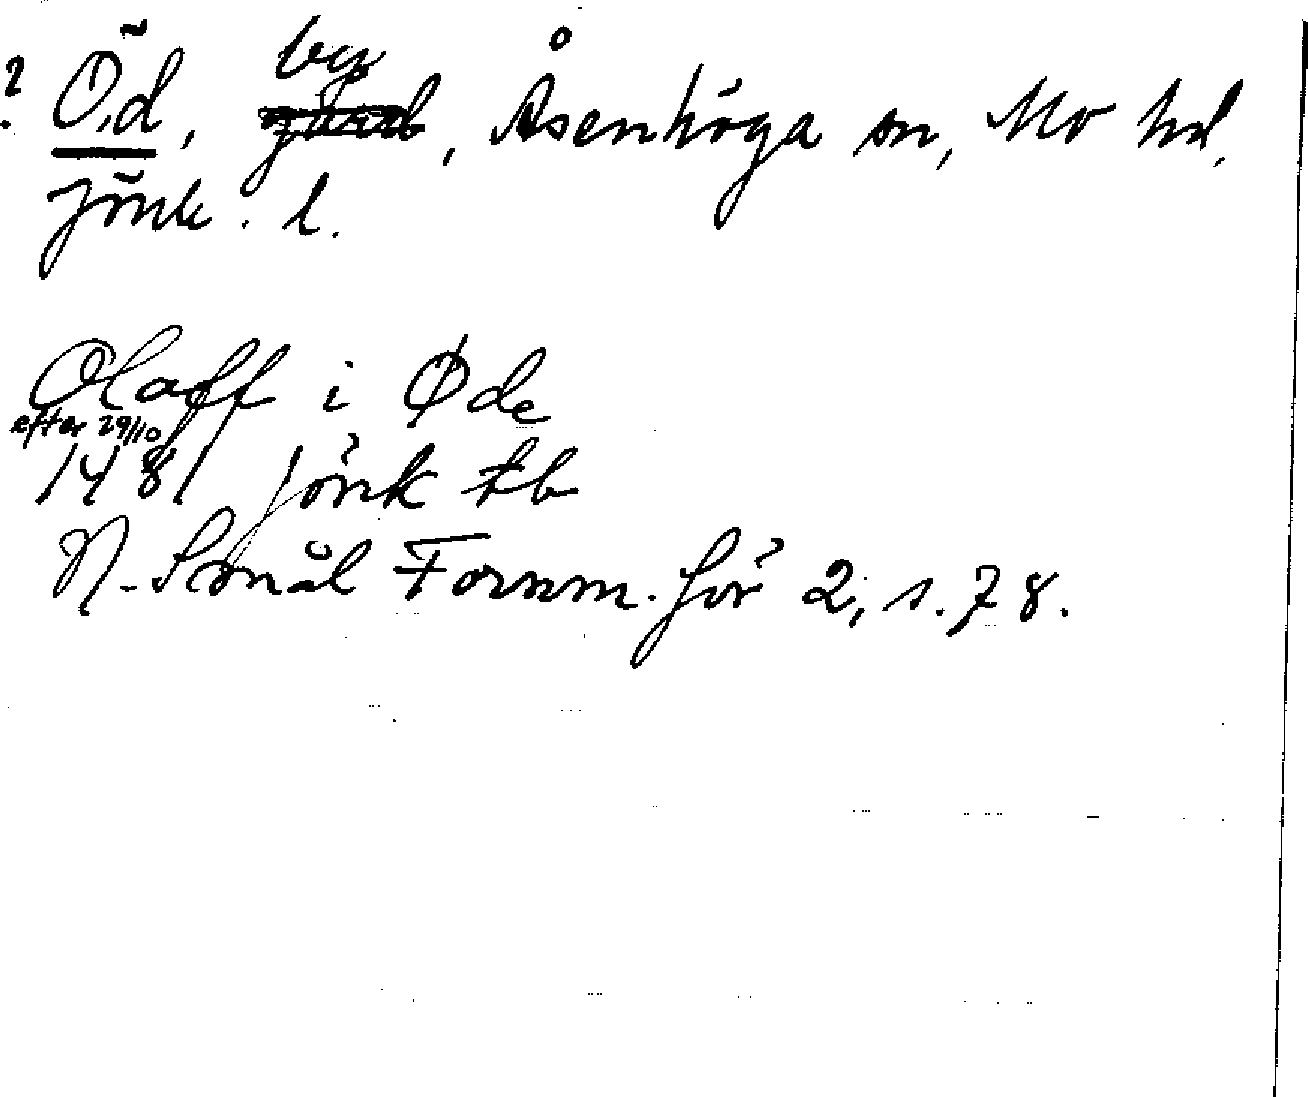 ? Öd, by gård, Åsenhöga sn, Mo hd,
Jönk. l.
Olaff i Øde
efter 29/10
1481 Jönk tb
N. Smål Fornm. för 2, s. 78.